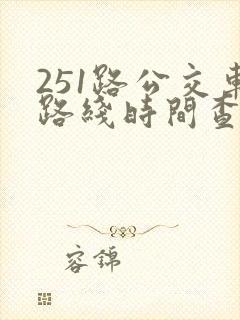 251路公交車
路綫時間查
容錦